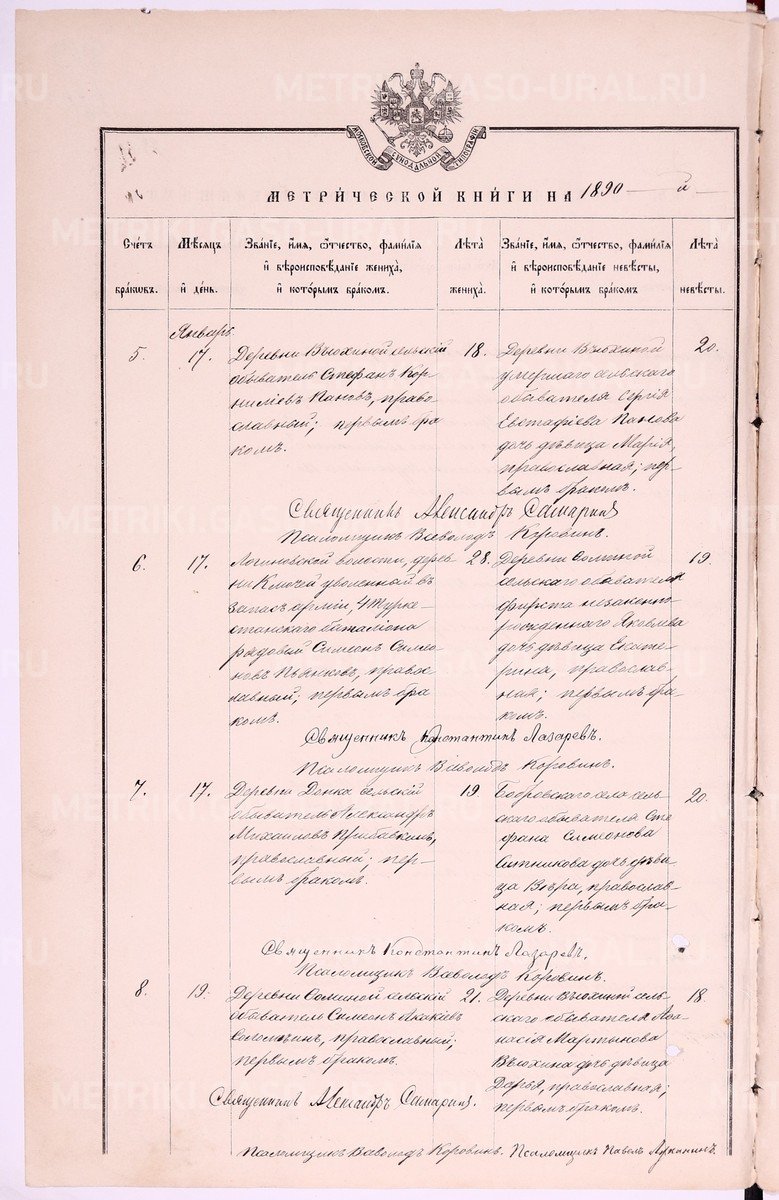 МОСКОВСКОЙ СѴНОДАЛЬНОЙ ТИПОГРАФІИ
МЕТРИ́ЧЕСКОЙ КНИ́ГИ НА 1890 й
Сче́тъ бра́кѡвъ.
Мѣ́сяцъ и́ де́нь.
Зва́нїе, и́мѧ, ѻ́тчество, фами́лїѧ
и́ вѣроисповѣ́данїе жениха̀,
и́ кото́рымъ бра́комъ.
Лѣта̀ жениха̀.
Зва́нїе, и́мѧ, ѻ́тчество, фами́лїѧ
и́ вѣроисповѣ́данїе невѣ́сты,
и́ кото́рымъ бра́комъ
Лѣта̀ невѣ́сты.
Январь
5. 17.
Деревни Вьюхиной сельскій
обыватель Стефанъ Кор-
ниліевъ Пановъ, право
славный; первымъ бра
комъ.
18.
Деревни Вьюхиной
умершаго сельскаго
обывателя Сергія
Евстафіева Панова
дочь дѣвица Марія,
православная; пер-
вымъ бракомъ.
20.
Священникъ Александръ Самаринъ
Псаломщикъ Всеволодъ Коровинъ.
6. 17.
Логиновской волости, дерев
ни Ключей уволенный въ
запасъ арміи, 4 Турке-
станскаго баталіона
рядовой Симеонъ Симе
оновъ Пьянковъ, правос
лавный; первымъ бра
комъ.
28.
Деревни Соминой
сельскаго обывателя
незаконно
рожденнаго Яковлева
дочь дѣвица Екате-
рина, православ-
ная; первымъ бра-
комъ.
19.
Священникъ Константинъ Лазаревъ.
Псаломщикъ Всеволодъ Коровинъ.
7. 17.
сельскій
обыватель Александръ
Михаиловъ Прибавкинъ,
православный; пер-
вымъ бракомъ.
19.
Бобровскаго села сель-
скаго обывателя Сте
фана Симеонова
Ситникова дочь дѣви
ца Вѣра, православ-
ная; первымъ бра-
комъ.
20.
Священникъ Константинъ Лазаревъ.
Псаломщикъ Всеволодъ Коровинъ.
8. 19.
Деревни Соминой сельскій
обыватель Симеонъ Акакіевъ
православный;
первымъ бракомъ.
21.
Деревни Вьюхиной сель-
скаго обывателя Аѳа
насія Мартынова
Вьюхина дочь дѣвица
Дарья, православная;
первымъ бракомъ.
18.
Священникъ Александръ Самаринъ.
Псаломщикъ Всеволодъ Коровинъ. Псаломщикъ Павелъ